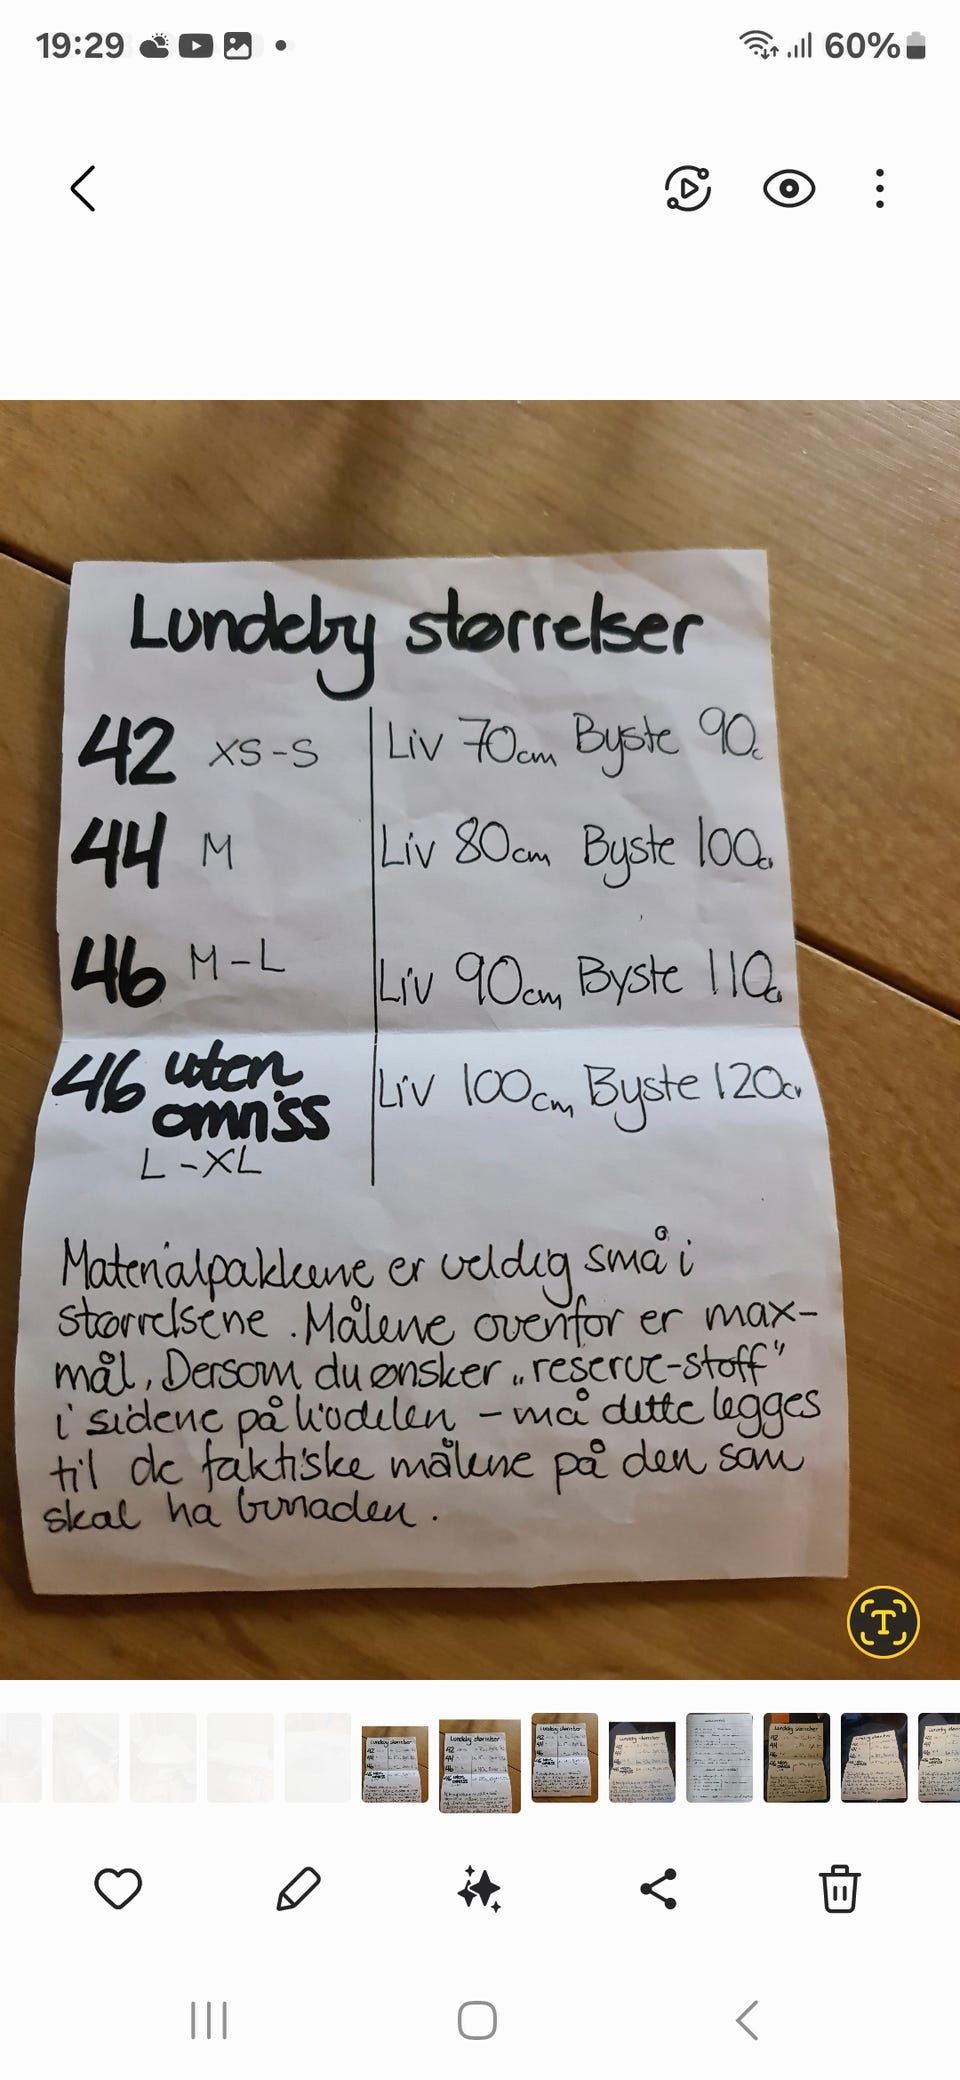 19:29
60%
Lundeby størrelser
42 XS-S Liv 70cm Byste 90c
44 M Liv 80cm Byste 100c
46 M-L Liv 90cm Byste 110c
46 uten omriss Liv 100cm Byste 120c
L-XL
Materialpakkene er veldig små i
størrelsene. Målene ovenfor er max-
mål. Dersom du ønsker „reserve-stoff"
i sidene på livdelen - må dette legges
til de faktiske målene på den som
skal ha bunaden.
T